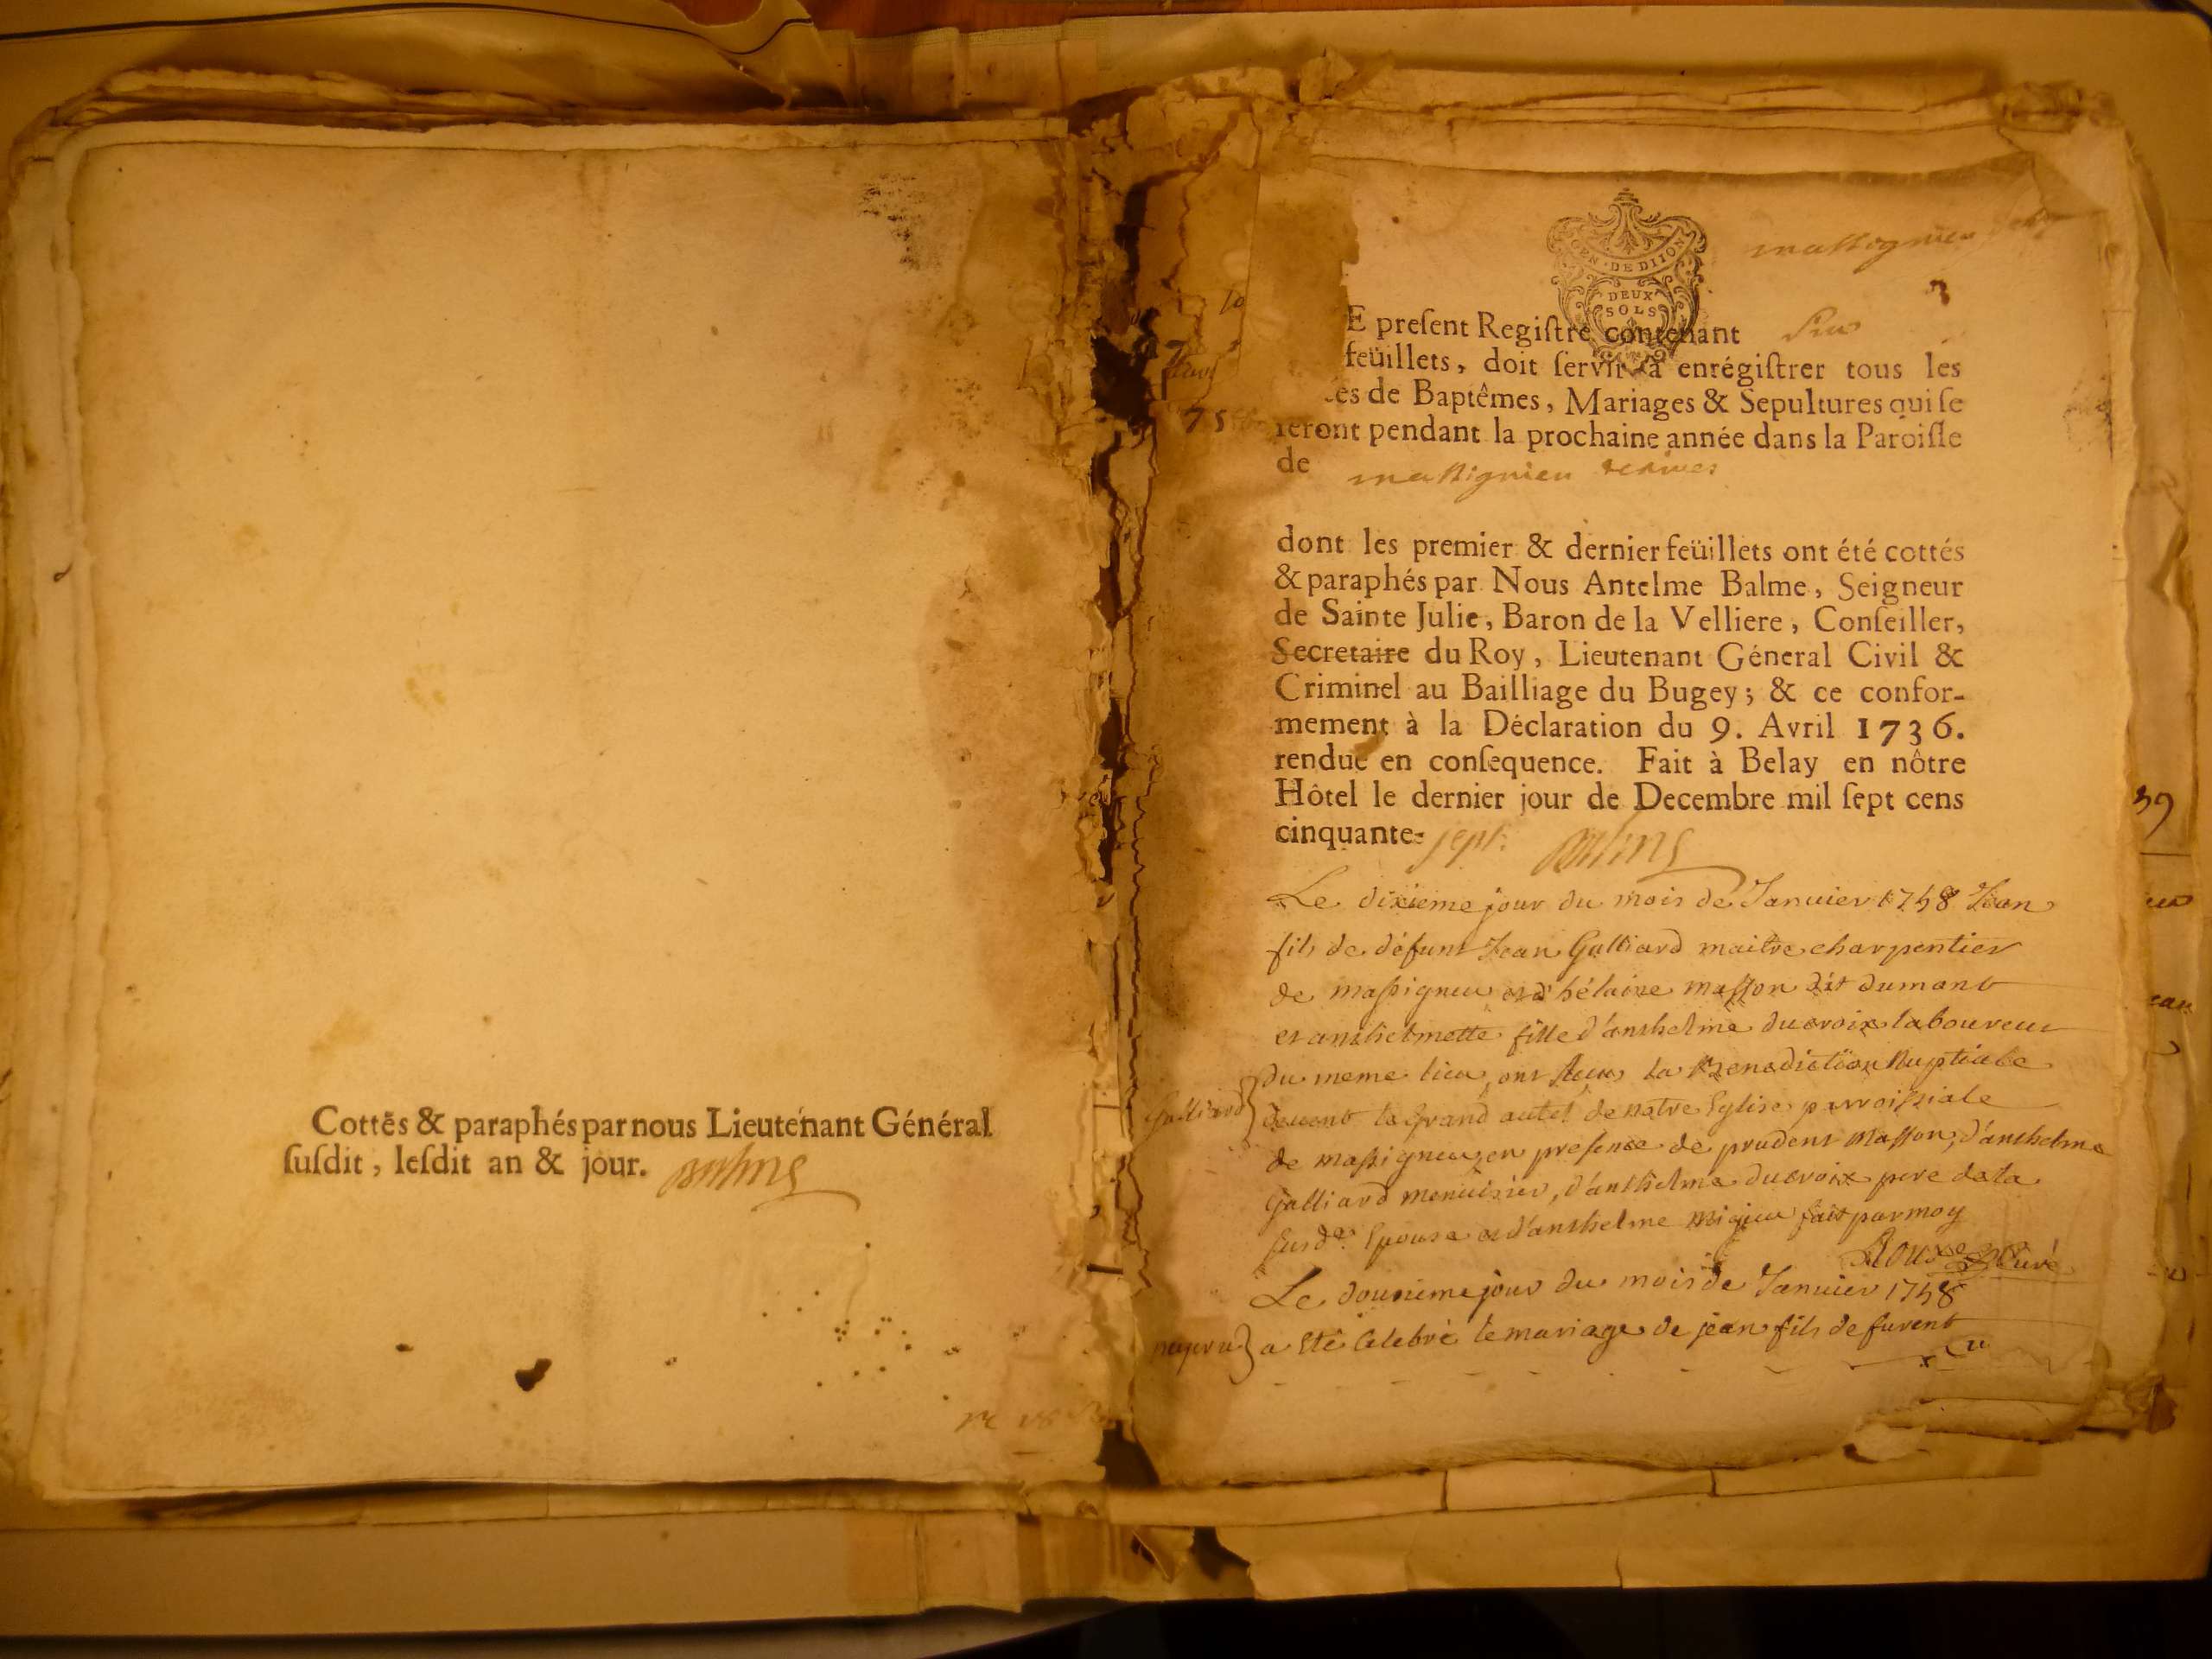 Cottés & paraphés par nous Lieutenant Général
ſuſdit, leſdit an & jour.
GEN · DE DIJON
DEUX
SOLS
massignieu
E preſent Regiſtre contenant Six
feüillets, doit ſervir à enrégiſtrer tous les
es de Baptêmes, Mariages & Sepultures qui ſe
feront pendant la prochaine année dans la Paroiſſe
de massignieu
dont les premier & dernier feüillets ont été cottés
& paraphés par Nous Antelme Balme, Seigneur
de Sainte Julie, Baron de la Velliere, Conſeiller,
Secretaire du Roy, Lieutenant Géneral Civil &
Criminel au Bailliage du Bugey; & ce confor-
mement à la Déclaration du 9. Avril 1736.
renduë en conſequence. Fait à Belay en nôtre
Hôtel le dernier jour de Decembre mil ſept cens
cinquante-sept.
Le dixieme jour du mois de Janvier 1758 Jean
fils de défunt Jean Galliard maitre charpentier
de massigneu et d'hélaine masson dit dumant
et anthelmette fille d'anthelme ducroix laboureur
du meme lieu, ont Receu la Benediction Nuptiale
Galliard} devent le Grand autel de notre Eglise parroissiale
de massigneu, en presence de prudent Masson, d'anthelme
Galliard menuisier, d'anthelme ducroix pere de la
susde. Epouse et d'anthelme Migieu fait par moy
Curé
Le douzieme jour du mois de Janvier 1758
} a Eté Celebré le mariage de jean fils de furent
39